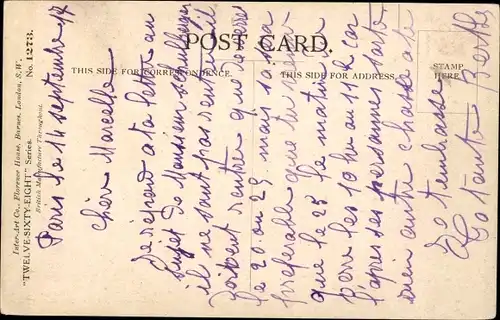 POST CARD.
THIS SIDE FOR CORRESPONDENCE.
THIS SIDE FOR ADDRESS.
STAMP
HERE
Inter-Art Co., Florence House, Barnes, London, S.W.
"TWELVE-SIXTY-EIGHT" Series. No. 1273.
British Manufacture Throughout.
Paris le 14 septembre 17
Chère Marcelle
Je répond a ta lettre au
sujet de Monsieur
il ne sont pas
doivent rentrer que
le 20 ou 25 mais sa sera
preferable que tu
que le 25 le matin
vers les 10 heu ou 11 h car
l'apres personne sorte
autre chose a te
Je t'embrasse
Ta tante Berthe